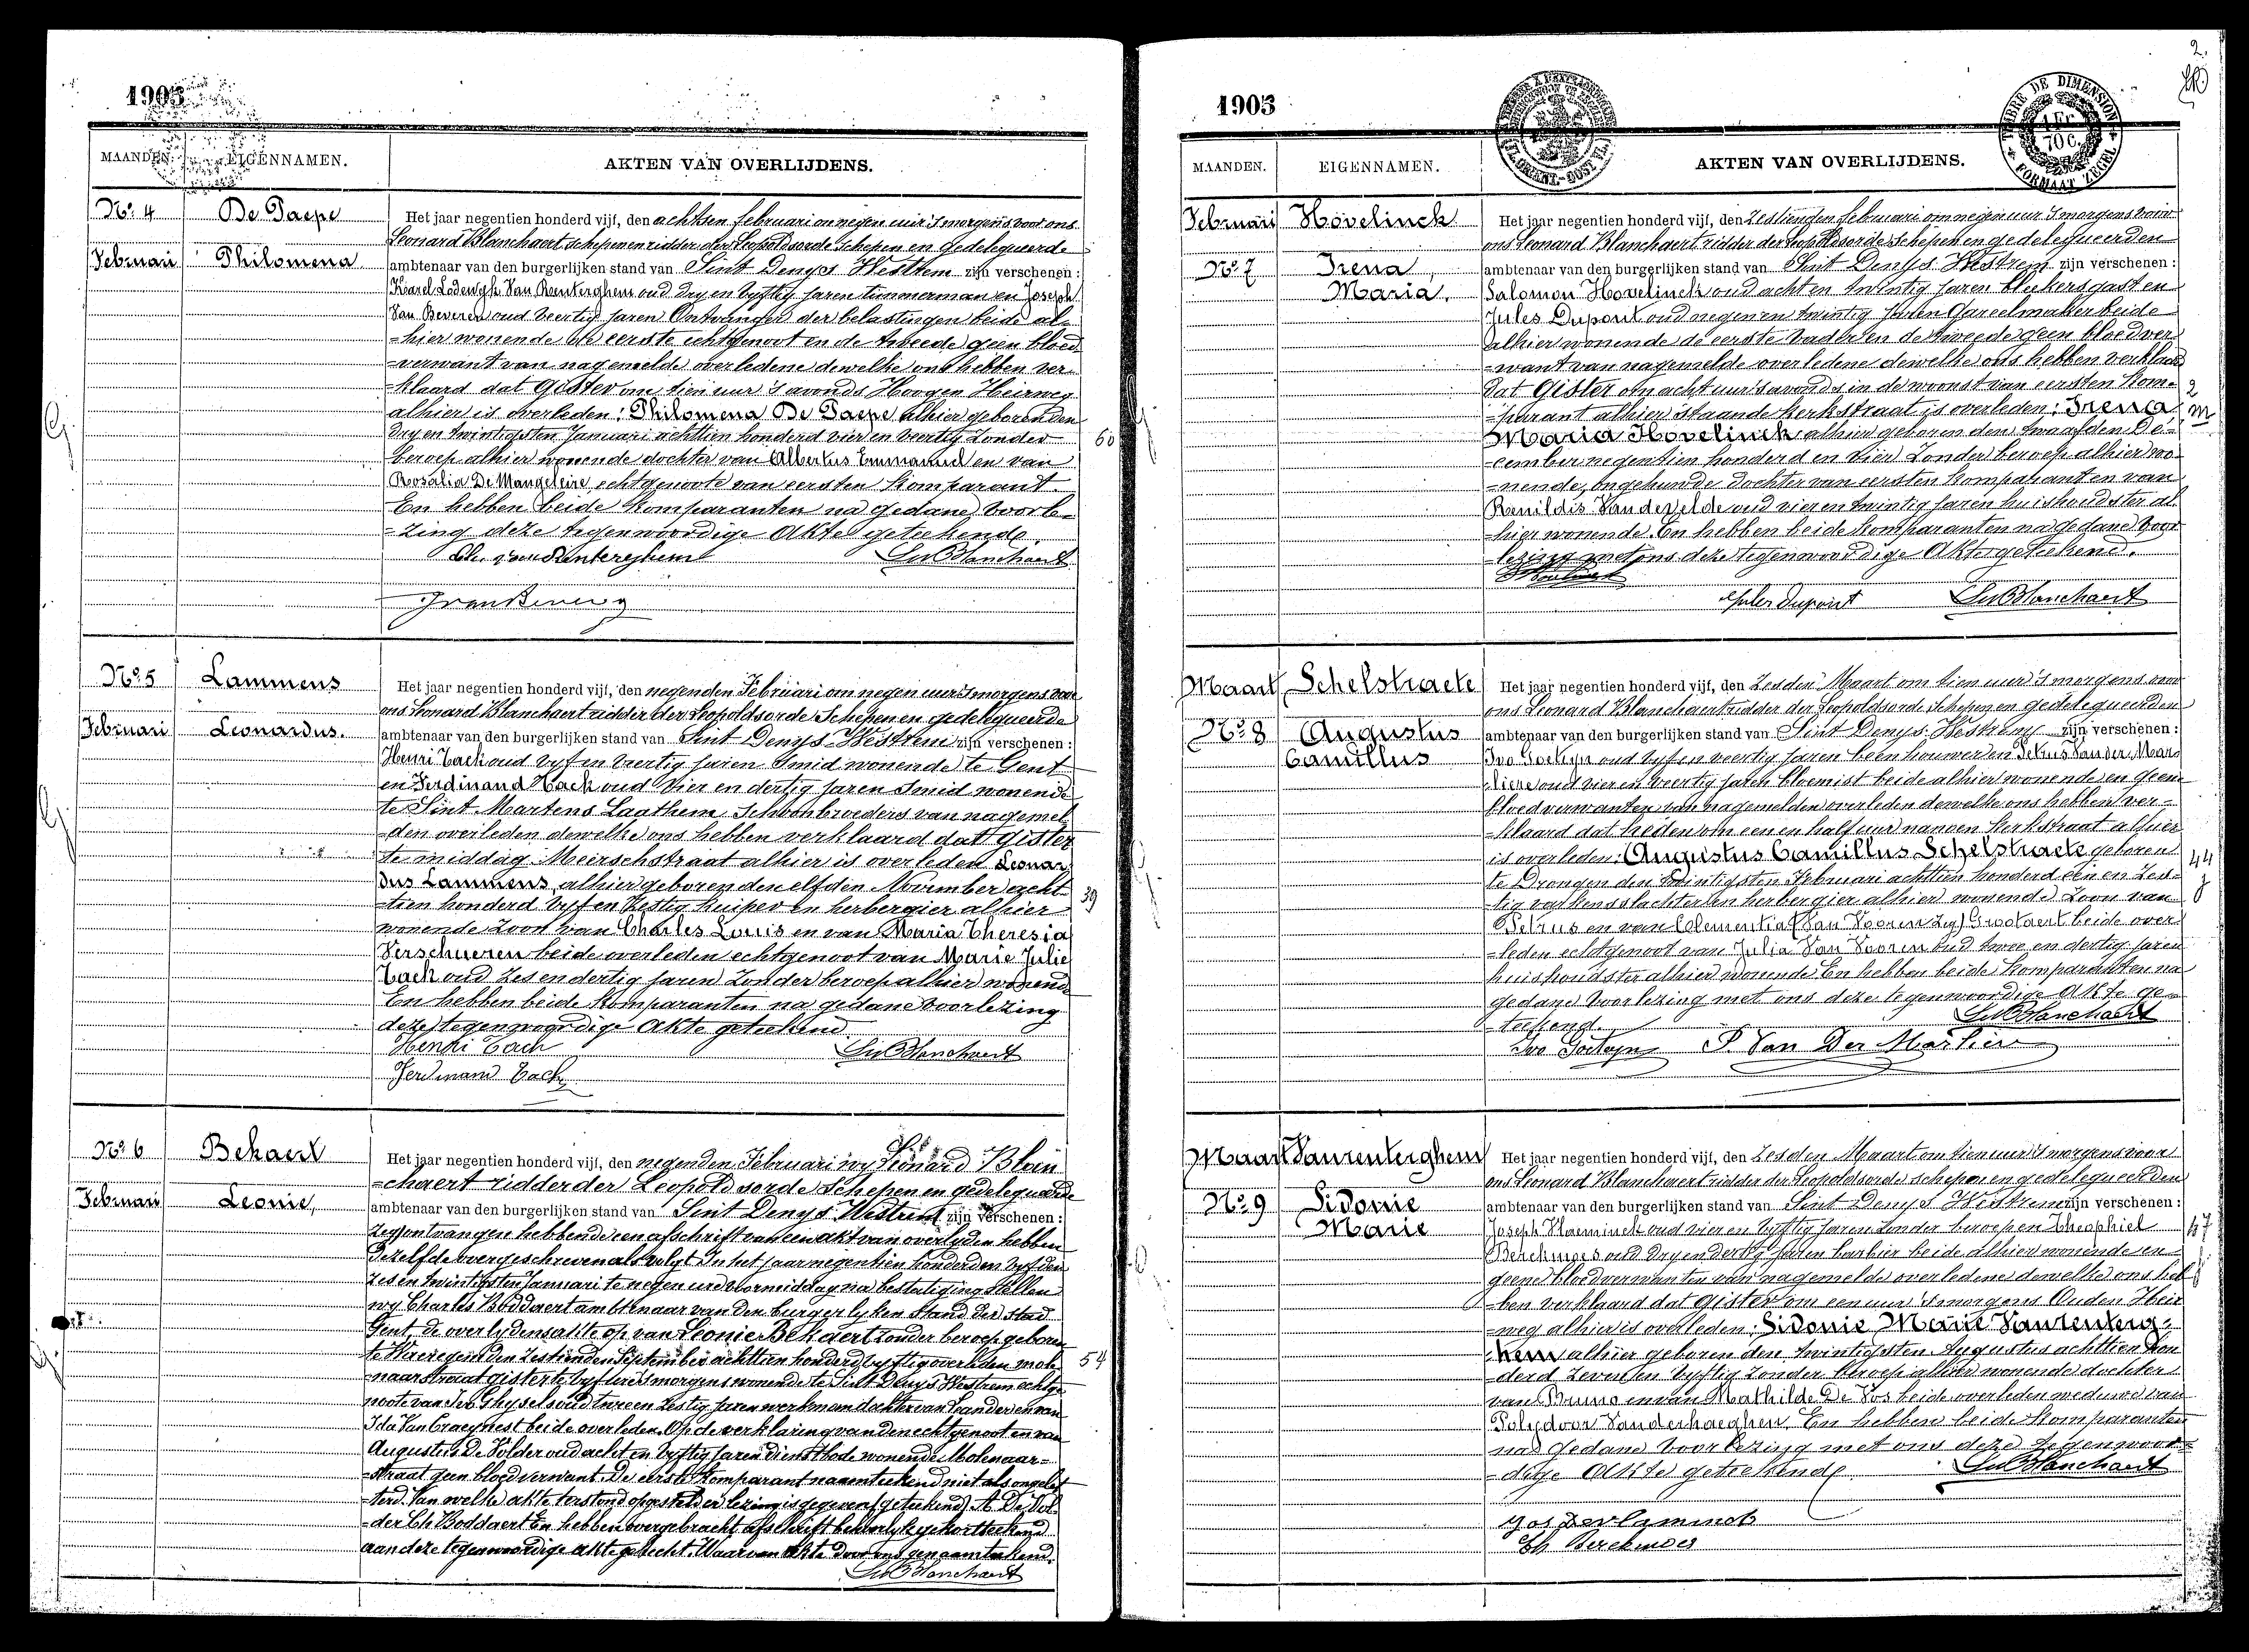 1905
MAANDEN. EIGENNAMEN. AKTEN VAN OVERLIJDENS.
No. 4 De Paepe
Februari Philomena
Het jaar negentien honderd vijf, den achtsen februari om negen uur 's morgens voor ons
Leonard Blanchaert schepen en ridder der Leopoldsorde Schepen en gedelegueerde
ambtenaar van den burgerlijken stand van Sint Denys Westrem zijn verschenen :
Karel Lodewyk Van Renterghem oud dry en vyftig jaren timmerman en Joseph
Van Beveren oud veertig jaren Ontvanger der belastingen beide al=
=hier wonende de eerste echtgenoot en de tweede geen bloed
=verwant van nagemelde overledene dewelke ons hebben ver=
=klaard dat gister om tien uur 's avonds Hoogen Heirweg
alhier is overleden : Philomena De Paepe alhier geboren den
dry en twintigsten Januari achttien honderd vier en veertig zonder
60
beroep alhier wonende dochter van Albertus Emmanuel en van
Rosalia De Mangeleire echtgenoote van eersten komparant.
En hebben beide komparanten na gedane voorle=
=zing deze tegenwoordige Akte geteekende.
Ch. van Renterghem Ln Blanchaert
J van Beveren
No. 5 Lammens
Februari Leonardus.
Het jaar negentien honderd vijf, den negenden Februari om negen uur 's morgens voor
ons Leonard Blanchaert ridder der Leopoldsorde Schepen en gedelegueerde
ambtenaar van den burgerlijken stand van Sint Denys Westrem zijn verschenen :
Henri Tack oud vyf en veertig jaren Smid wonende te Gent
en Ferdinand Tack oud vier en dertig jaren Smid wonende
te Sint Martens Laathem, Schoonbroeders van nagemel=
=den overleden dewelke ons hebben verklaard dat gister
te middag Meirschstraat alhier is overleden Leonar
dus Lammens, alhier geboren den elfden November acht
39
=tien honderd vyf en zestig kuiper en herbergier alhier
wonende Zoon van Charles Louis en van Maria Theresia
Verschueren beide overleden echtgenoot van Marie Julie
Tack oud zes en dertig jaren Zonder beroep alhier wonende
En hebben beide komparanten na gedane voorlezing
deze tegenwoordige Akte geteekend
Henri Tack Ln Blanchaert
Ferdinand Tack
No. 6 Bekaert
Februari Leonie,
Het jaar negentien honderd vijf, den negenden Februari wy Leonard Blan
=chaert ridder der Leopoldsorde Schepen en gedelegueerde
ambtenaar van den burgerlijken stand van Sint Denys Westrem zijn verschenen :
zeg ontvangen hebbende een afschrift van een akt van overlyden hebben
dezelfde overgeschreven als volgt In het jaar negentien honderd en vyf den
zes en twintigsten Januari te negen ure voormiddag na bestatiging stellen
wy Charles Boddaert ambtenaar van den burgerlyken Stand der Stad
Gent, de overlydensakte op van Leonie Bekaert zonder beroep geboren
te Waeregem den zestienden September achttien honderd vyftig overleden mole
54
=naarstraat gister te vyf ure 's morgens wonende te Sint Denys Westrem echtge
noote van Ivo Ghysels oud twee en zestig jaren werkman dochter van Leander en van
Ida Van Craeynest beide overleden. Op de verklaring van den echtgenoot en van
Augustus De Volder oud acht en vyftig jaren dienstbode wonende Molenaar=
=straat geen bloedverwant. De eerste komparant naamteekend niet als ongelet
=terd. Van welke akte terstond opgesteld en lezing is gegeven (geteekend) A. De Vol=
=der Ch. Boddaert En hebben overgebracht afschrift behoorlyk gekortteekend
aan deze tegenwoordige akte gehecht. Waarvan Akte door ons genaamteekend.
Ln Blanchaert
2.
1905
TIMBRE DE DIMENSION
1 Fr.
70 C.
FORMAAT ZEGEL
MAANDEN. EIGENNAMEN. AKTEN VAN OVERLIJDENS.
Februari Hovelinck
No. 7 Irena,
Maria.
Het jaar negentien honderd vijf, den Zestienden februari om negen uur 's morgens voor
ons Leonard Blanchaert ridder der Leopoldsorde Schepen en gedelegueerden
ambtenaar van den burgerlijken stand van Sint Denys Westrem zijn verschenen :
Salomon Hovelinck oud acht en twintig jaren bleekersgast en
Jules Dupont oud negen en twintig jaren Gareelmaker beide
alhier wonende de eerste vader en de tweede geen bloedver
=want van nagemelde overledene dewelke ons hebben verklaard
dat gister om acht uur 's avonds in de woonst van eersten kom=
=parant alhier staande Kerkstraat is overleden : Irena
2 m
Maria Hovelinck alhier geboren den twaalfden De=
=cember negentien honderd en vier Zonder beroep alhier wo=
=nende, ongehuwde dochter van eersten komparant en van
Renildis Van de Velde oud vier en twintig jaren huishoudster al
=hier wonende. En hebben beide komparanten na gedane voor
lezing met ons deze tegenwoordige Akte geteekend.
Jules Dupont Ln Blanchaert
Maart Schelstraete
No. 8 Augustus
Camillus
Het jaar negentien honderd vijf, den Zesden Maart om tien uur 's morgens voor
ons Leonard Blanchaert ridder der Leopoldsorde Schepen en gedelegueerden
ambtenaar van den burgerlijken stand van Sint Denys Westrem zijn verschenen :
Ivo Goetyn oud vyf en veertig jaren beenhouwer en Petrus Van der Mar=
=liere oud vier en veertig jaren bloemist beide alhier wonende en geene
bloedverwanten van nagemelden overleden dewelke ons hebben ver=
=klaard dat heden om een en half uur nanoen Kerkstraat alhier
is overleden : Augustus Camillus Schelstraete geboren
44 j
te Drongen den twintigsten Februari achttien honderd een en Zes=
=tig varkensslachter en herbergier alhier wonende Zoon van
Petrus en van Clementia (Van Vooren zeg) Grootaert beide over=
=leden echtgenoot van Julia Van Vooren oud twee en dertig jaren
huishoudster alhier wonende En hebben beide komparanten na
gedane voorlezing met ons deze tegenwoordige Akte ge=
=teekend.
Ln Blanchaert
Ivo Goetyn P. Van Der Marliere
Maart Vanrenterghem
No. 9 Sidonie
Marie
Het jaar negentien honderd vijf, den Zesden Maart om tien uur 's morgens voor
ons Leonard Blanchaert ridder der Leopoldsorde schepen en gedelegueerden
ambtenaar van den burgerlijken stand van Sint Denys Westrem zijn verschenen :
Joseph Vlaeminck oud vier en vyftig jaren zonder beroep en Theophiel
47
Berckmoes oud dry en dertig jaren barbier beide alhier wonende en
geene bloedverwanten van nagemelde overledene dewelke ons heb=
=ben verklaard dat gister om een uur 's morgens Ouden Heir
=weg alhier is overleden : Sidonie Marie Vanrenterg=
=hem alhier geboren den twintigsten Augustus achttien hon
derd zeven en vyftig Zonder beroep alhier wonende dochter
van Bruno en van Mathilde De Vos beide overleden weduwe van
Polydoor Vanderhaeghen. En hebben beide komparanten
na gedane voorlezing met ons deze tegenwoor=
=dige Akte geteekend
Ln Blanchaert
Th Berckmoes